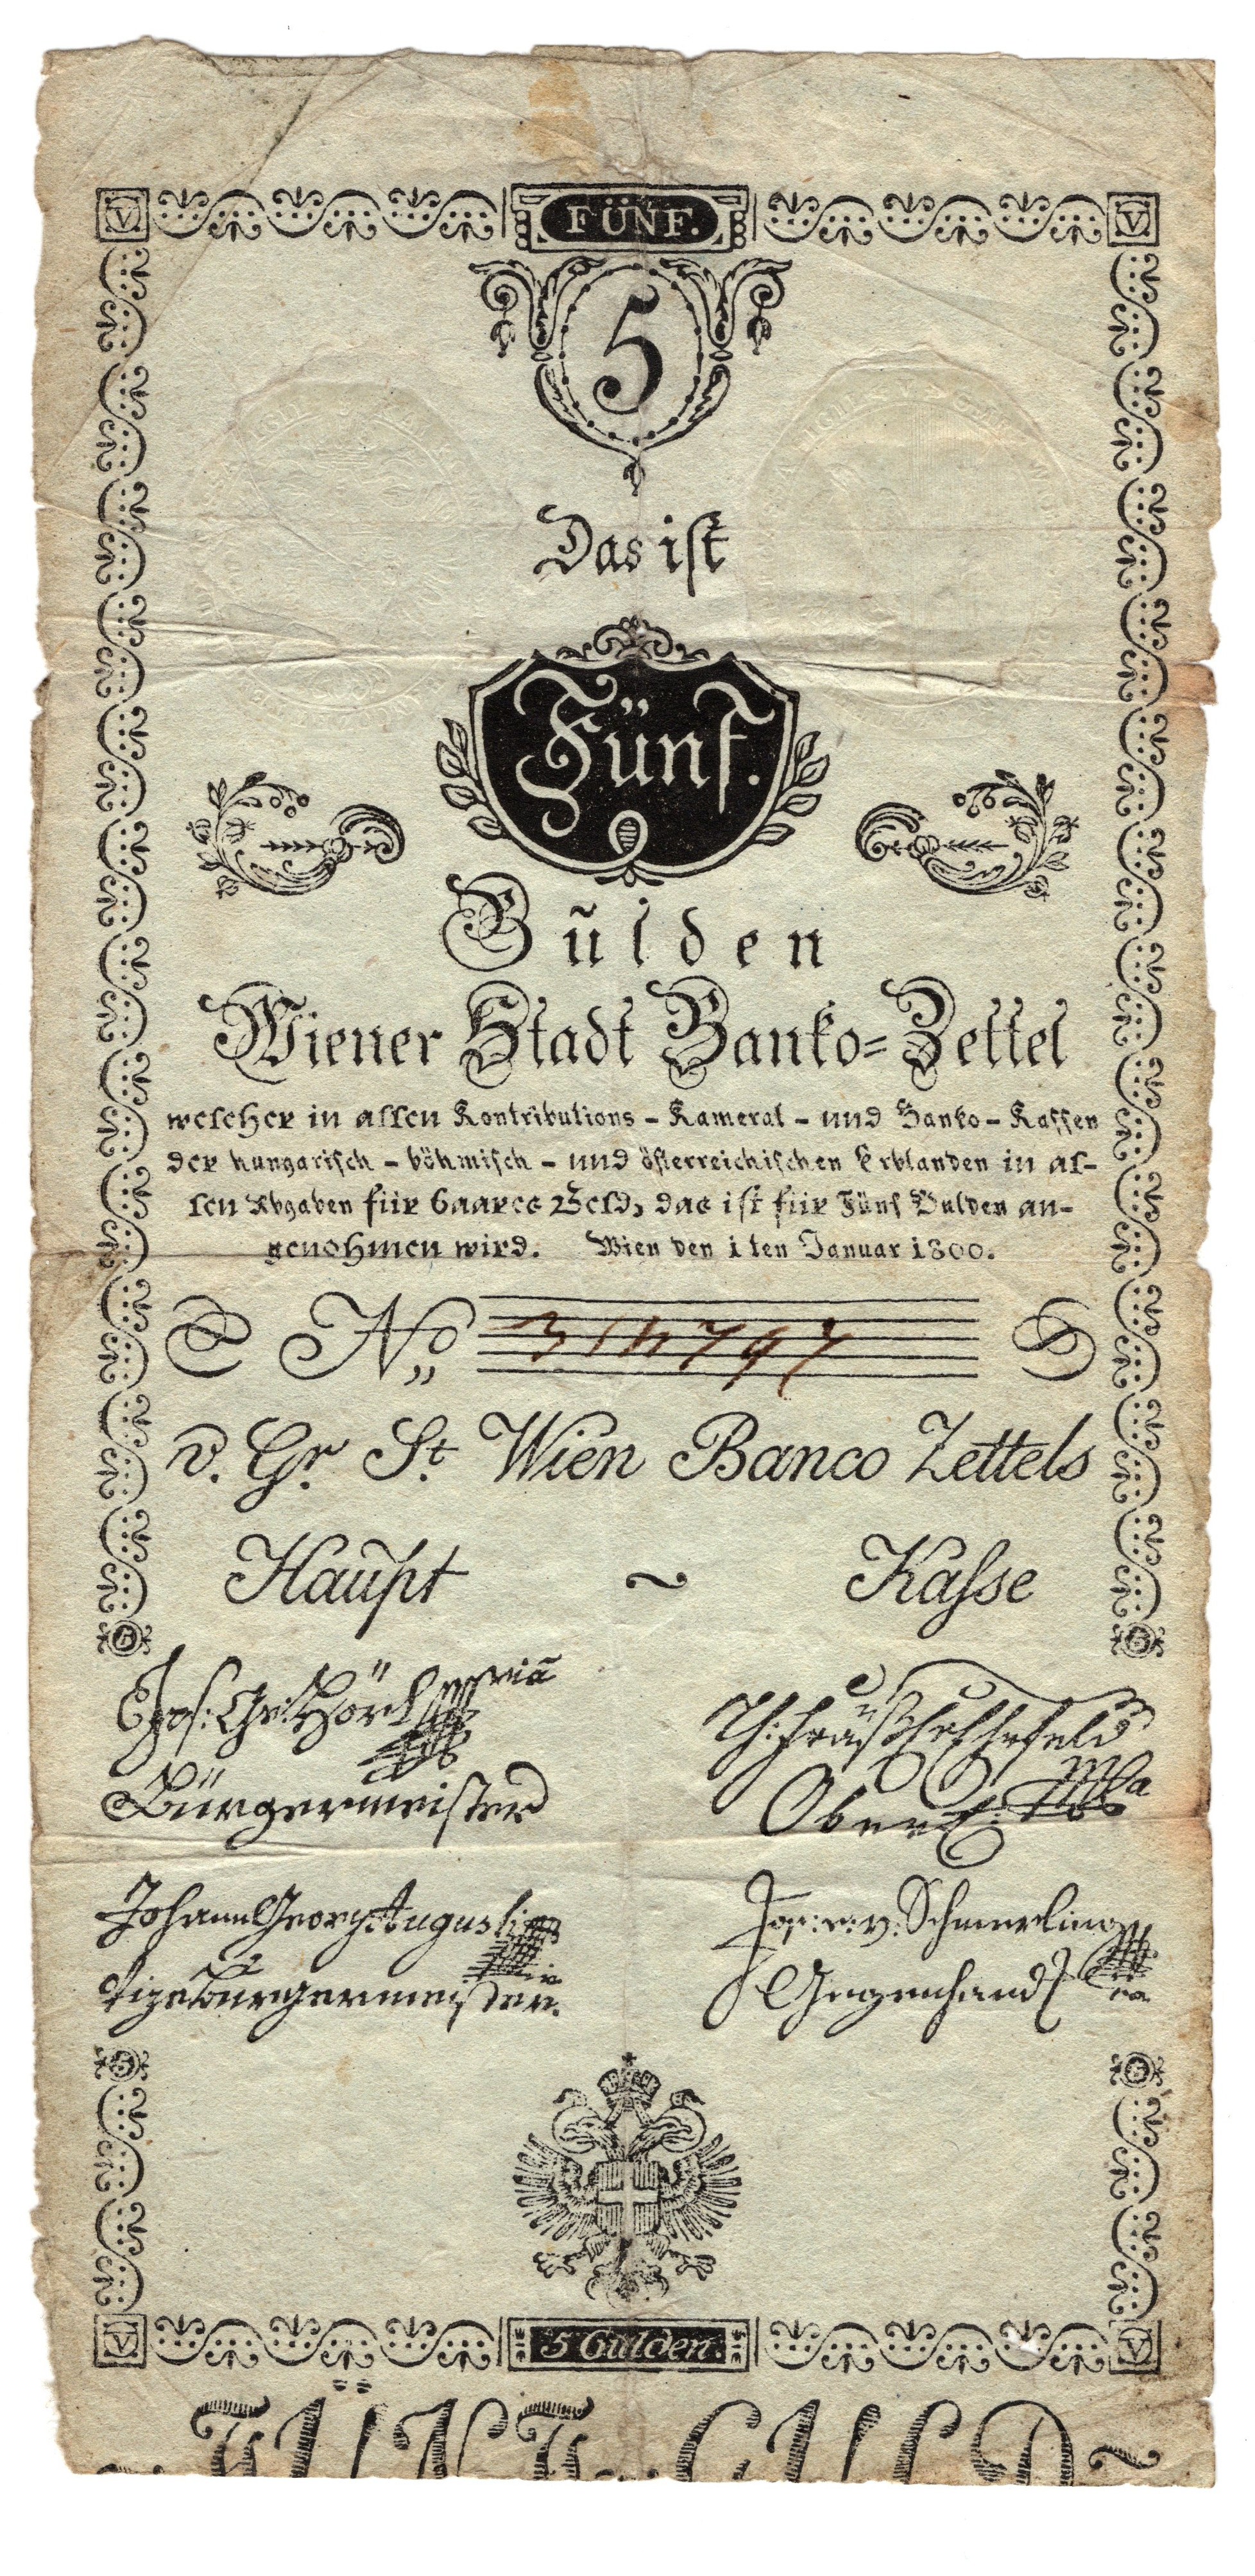 V FÜNF. V
5
Das ist
Fünf.
Gulden
Wiener Stadt Banko=Zettel
welcher in allen Kontributions - Kameral - und Banko - Kassen
der hungarisch - böhmisch - und österreichischen Erblanden in al-
len Abgaben für baares Geld, das ist für Fünf Gulden an-
genohmen wird. Wien den 1 ten Januar 1800.
No
v. Gr. St. Wien Banco Zettels
Haupt ~ Kasse
5 5
Jos: Ge: Hörl
Bürgermeister
Johann Georg Augusti Jos: v: Schmerling
Vizebürgermeister. Gegenhand
5 5
V 5 Gulden. V
FÜNF GULD